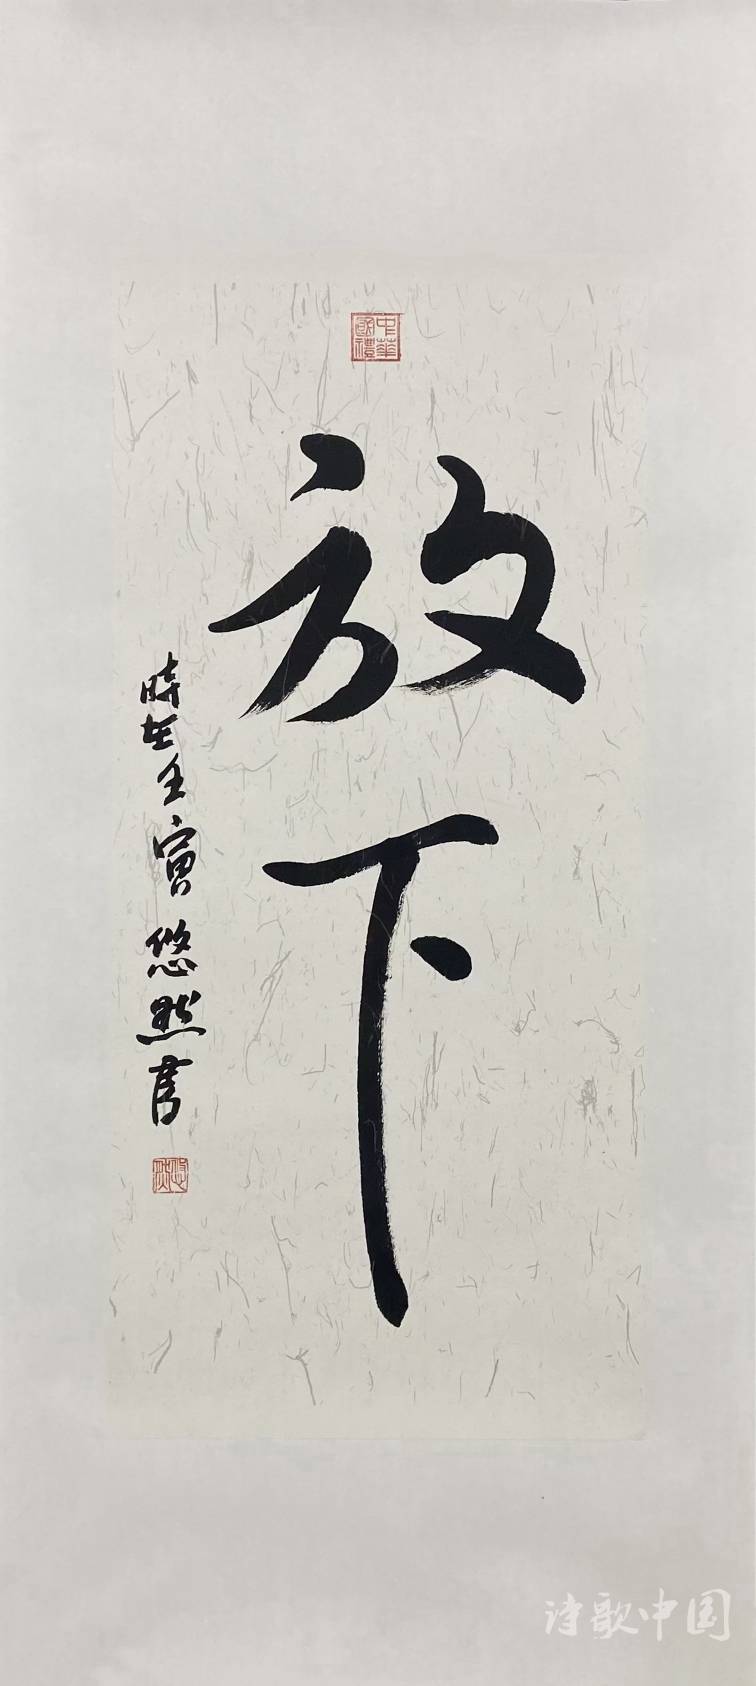 中華國禮
放下
時在壬寅悠然書
悠然
诗歌中国